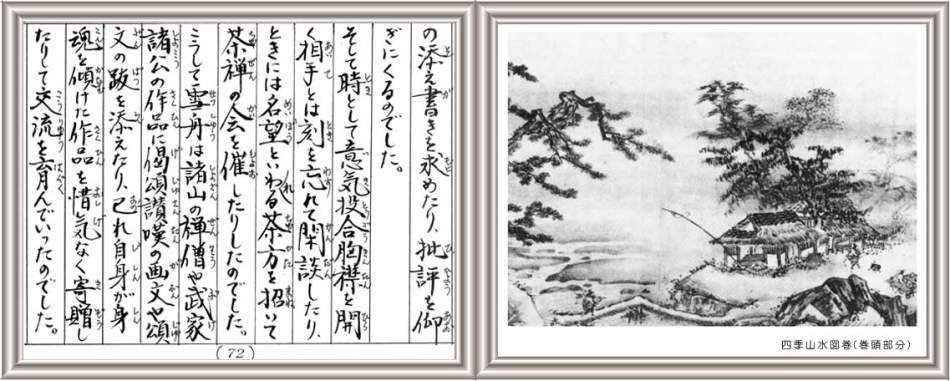 の添え書きを求めたり、批評を仰
ぎにくるのでした。
そして時として意気投合胸襟を開
く相手とは刻を忘れて閑談したり、
ときには名望といわれる茶方を招いて
茶禅の会を催したりしたのでした。
こうして雪舟は諸山の禅僧や武家
諸公の作品に偈頌讃嘆の画文や頌
文の跋を添えたり、己れ自身が身
魂を傾けた作品を惜気なく寄贈し
たりして交流を育んでいったのでした。
(72)
四季山水図巻(巻頭部分)